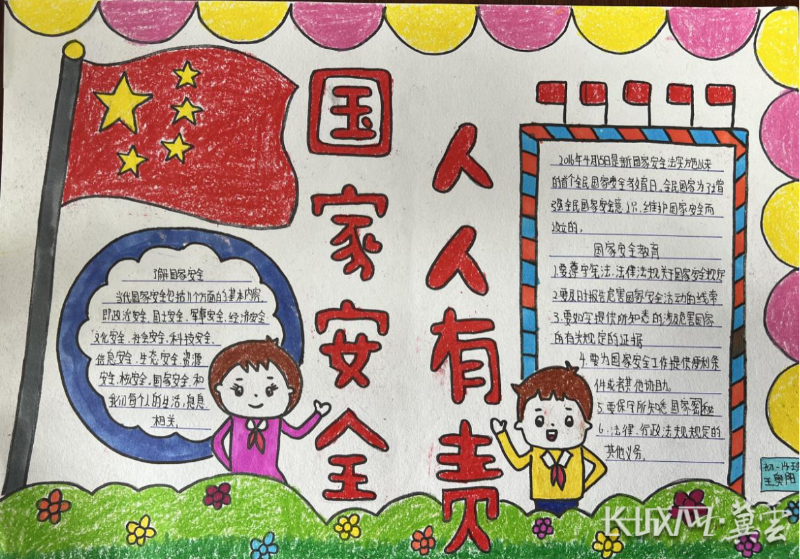 国家安全
人人有责
了解国家安全
当代国家安全包括11个方面的基本内容,
即政治安全、国土安全、军事安全、经济安全
文化安全、社会安全、科技安全、
信息安全、生态安全、资源
安全、核安全。国家安全和
我们每个人的生活息息
相关。
2016年4月15日是新国家安全法实施以来
的首个全民国家安全教育日。全民国家为了增
强全民国家安全意识,维护国家安全而
设立的。
国家安全教育
1.要遵守宪法、法律法规关于国家安全规定
2.要及时报告危害国家安全活动的线索
3.要如实提供所知悉的涉及危害国家
的有关规定的证据
4.要为国家安全工作提供便利条
件或者其他协助。
5.要保守所知悉国家密秘
6.法律、行政法规规定的
其他义务。
长城网·冀云